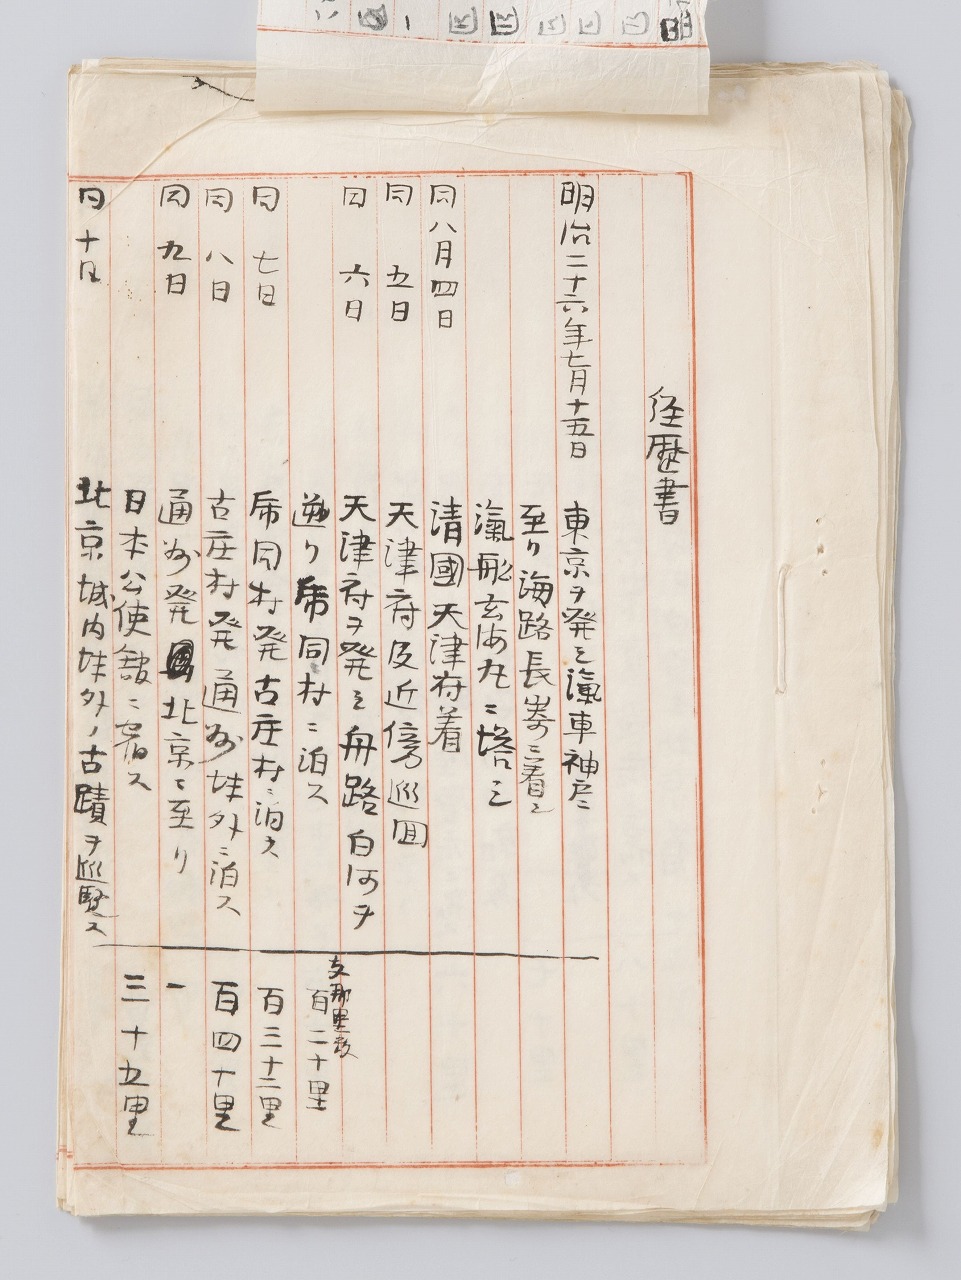 経歴書
明治二十六年七月十五日 東京ヲ発シ滊車神戸ニ
至リ海路長崎ニ着シ
滊船玄海丸ニ搭シ
同八月四日 清國天津府着
同 五日 天津府及近傍巡回
同 六日 天津府ヲ発シ舟路白河ヲ
遡リ 同村ニ泊ス 支那里数 百二十里
同 七日 同村発古庄村ニ泊ス 百三十二里
同 八日 古庄村発通州城外ニ泊ス 百四十里
同 九日 通州発 北京ニ至リ 一
日本公使舘ニ宿ス 三十五里
同 十日 北京城内城外ノ古蹟ヲ巡覧ス